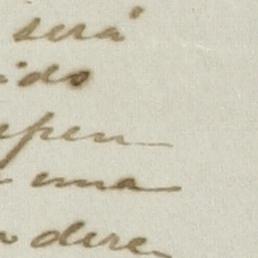 será
ido
epen
una
dere